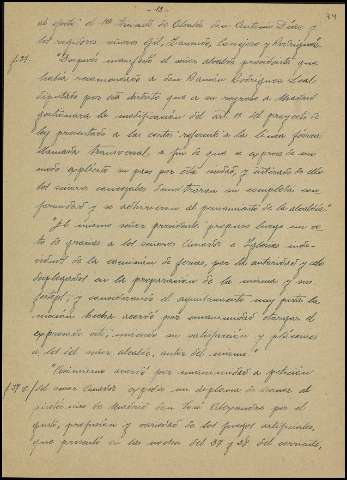 - 13 -
34
al apeló; el 1er teniente de Alcalde don Antonio Díaz y
los regidores señores Gil, Zamudio, Conejero y Rodríguez.
f. 37. "Después manifestó el señor alcalde presidente que
había recomendado a don Ramón Rodríguez Leal
diputado por este distrito que a su regreso a Madrid
gestionara la modificación del art. 11 del proyecto de
ley presentado a las Cortes referente a la línea férrea
llamada transversal, a fin de que se exprese de un
modo explícito su paso por esta ciudad, y enterado de ello
los señores concejales demostraron su completa con-
formidad y se adhirieron al pensamiento de la alcaldía."
"El mismo señor presidente propuso luego un vo-
to de gracias a los señores Amador e Iglesias indi-
viduos de la comisión de ferias, por la actividad y celo
desplegados en la preparación de la misma y sus
festejos; y considerando el ayuntamiento muy justa la
moción hecha acordó por unanimidad otorgar el
expresado voto; uniendo su satisfacción y plácemes
a los del señor alcalde, autor del mismo."
"Asimismo acordó por unanimidad a petición
f. 37 v. del señor Amador expedir un diploma de honor al
pirotécnico de Madrid don José Alejandro por el
gusto, profusión y variedad de los fuegos artificiales,
que presentó en las noches del 27 y 28 del corriente,